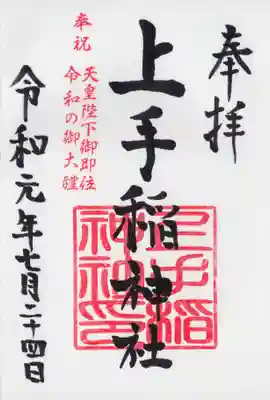 奉拝
上手稲神社
上手稲神社印
奉祝
天皇陛下御即位
令和の御大禮
令和元年七月二十四日